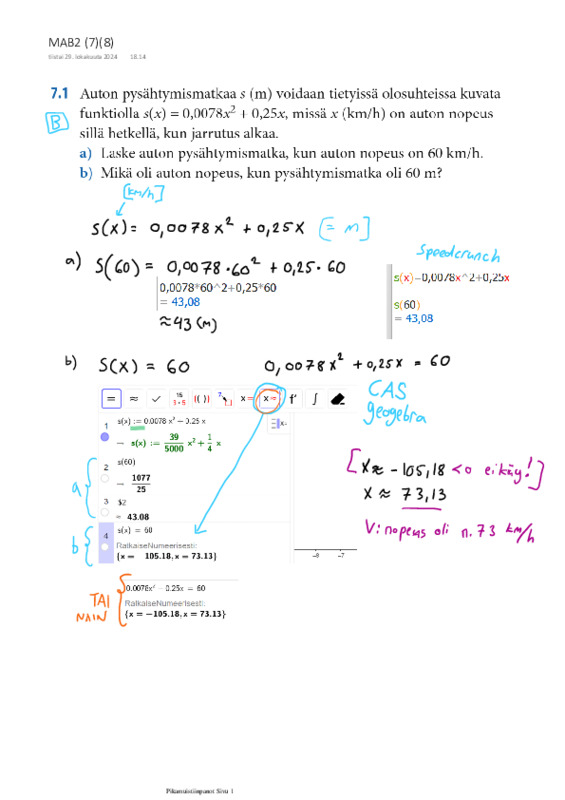 MAB2 (7)(8)
tiistai 29. lokakuuta 2024 18.14
7.1 Auton pysähtymismatkaa s (m) voidaan tietyissä olosuhteissa kuvata
B funktiolla s(x) = 0,0078x² + 0,25x, missä x (km/h) on auton nopeus
sillä hetkellä, kun jarrutus alkaa.
a) Laske auton pysähtymismatka, kun auton nopeus on 60 km/h.
b) Mikä oli auton nopeus, kun pysähtymismatka oli 60 m?
[km/h]
s(x) = 0,0078x² + 0,25x [= m]
Speedcrunch
a) S(60) = 0,0078·60² + 0,25·60
0,0078*60^2+0,25*60
= 43,08
≈43 (m)
s(x)=0,0078x^2+0,25x
s(60)
= 43,08
b) S(x) = 60 0,0078x² + 0,25x = 60
CAS
geogebra
1 s(x) := 0.0078 x² + 0.25 x
→ s(x) := 39/5000 x² + 1/4 x
a
2 s(60)
→ 1077/25
3 $2
≈ 43.08
b
4 s(x) = 60
RatkaiseNumeerisesti:
{x = −105.18, x = 73.13}
-8 -7
[x ≈ -105,18 <0 ei käy!]
x ≈ 73,13
V: nopeus oli n. 73 km/h
TAI
NÄIN
0.0078x² + 0.25x = 60
RatkaiseNumeerisesti:
{x = −105.18, x = 73.13}
Pikamuistiinpanot Sivu 1